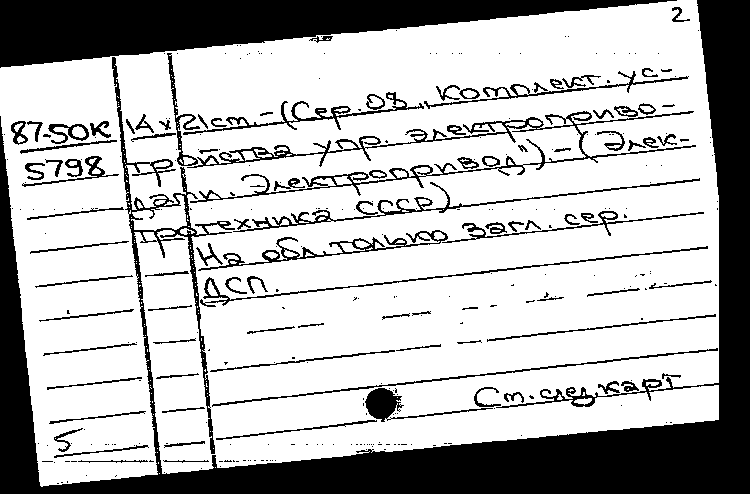 2
87-50К 14 х 21 ст. – (Сер. 08 „Комплект. ус-
5798 тройства упр. электроприво-
дами. Электропривод"). – (Элек-
тротехника СССР).
На обл. только загл. сер.
ДСП.
Ст. след. карт
5